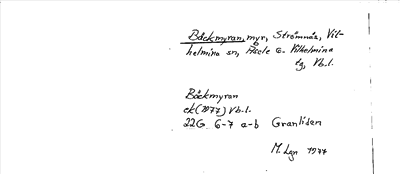 Bäckmyran, myr, Strömnäs, Vil-
helmina sn, Åsele o. Vilhelmina
tg, Vb.l.
Bäckmyran
ek (1977) Vb.l.
22G 6-7 a-b Granliden
M. Lgn 1977